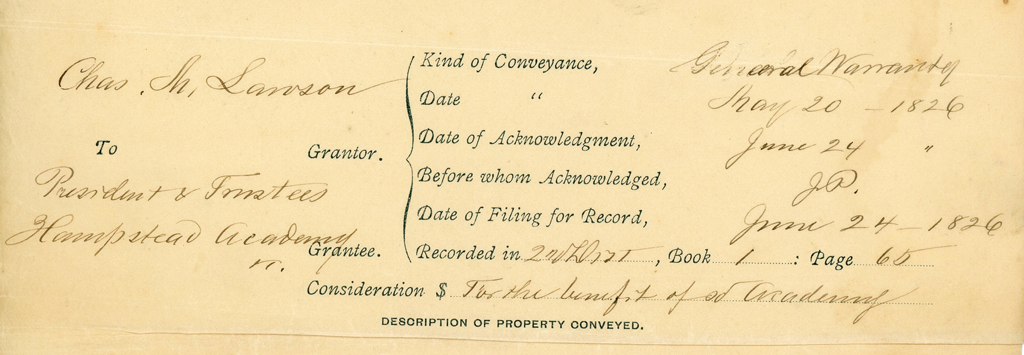 Chas. M. Lawson
To
Grantor.
President & Trustees
Hampstead Academy
Grantee.
Kind of Conveyance, General Warranty
Date " May 20 - 1826
Date of Acknowledgment, June 24 "
Before whom Acknowledged, J.P.
Date of Filing for Record, June 24 - 1826
Recorded in 2nd Dist, Book 1 : Page 65
Consideration $ For the benefit of sd Academy
DESCRIPTION OF PROPERTY CONVEYED.